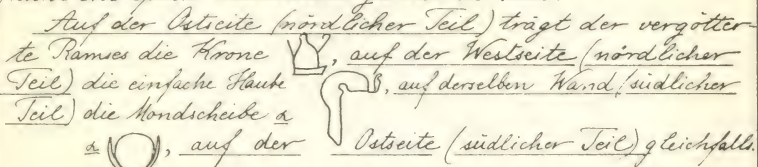 Auf der Ostseite (nördlicher Teil) trägt der vergötter-
te Ramses die Krone , auf der Westseite (nördlicher
Teil) die einfache Haube , auf derselben Wand (südlicher
Teil) die Mondscheibe a
a , auf der Ostseite (südlicher Teil) gleichfalls.